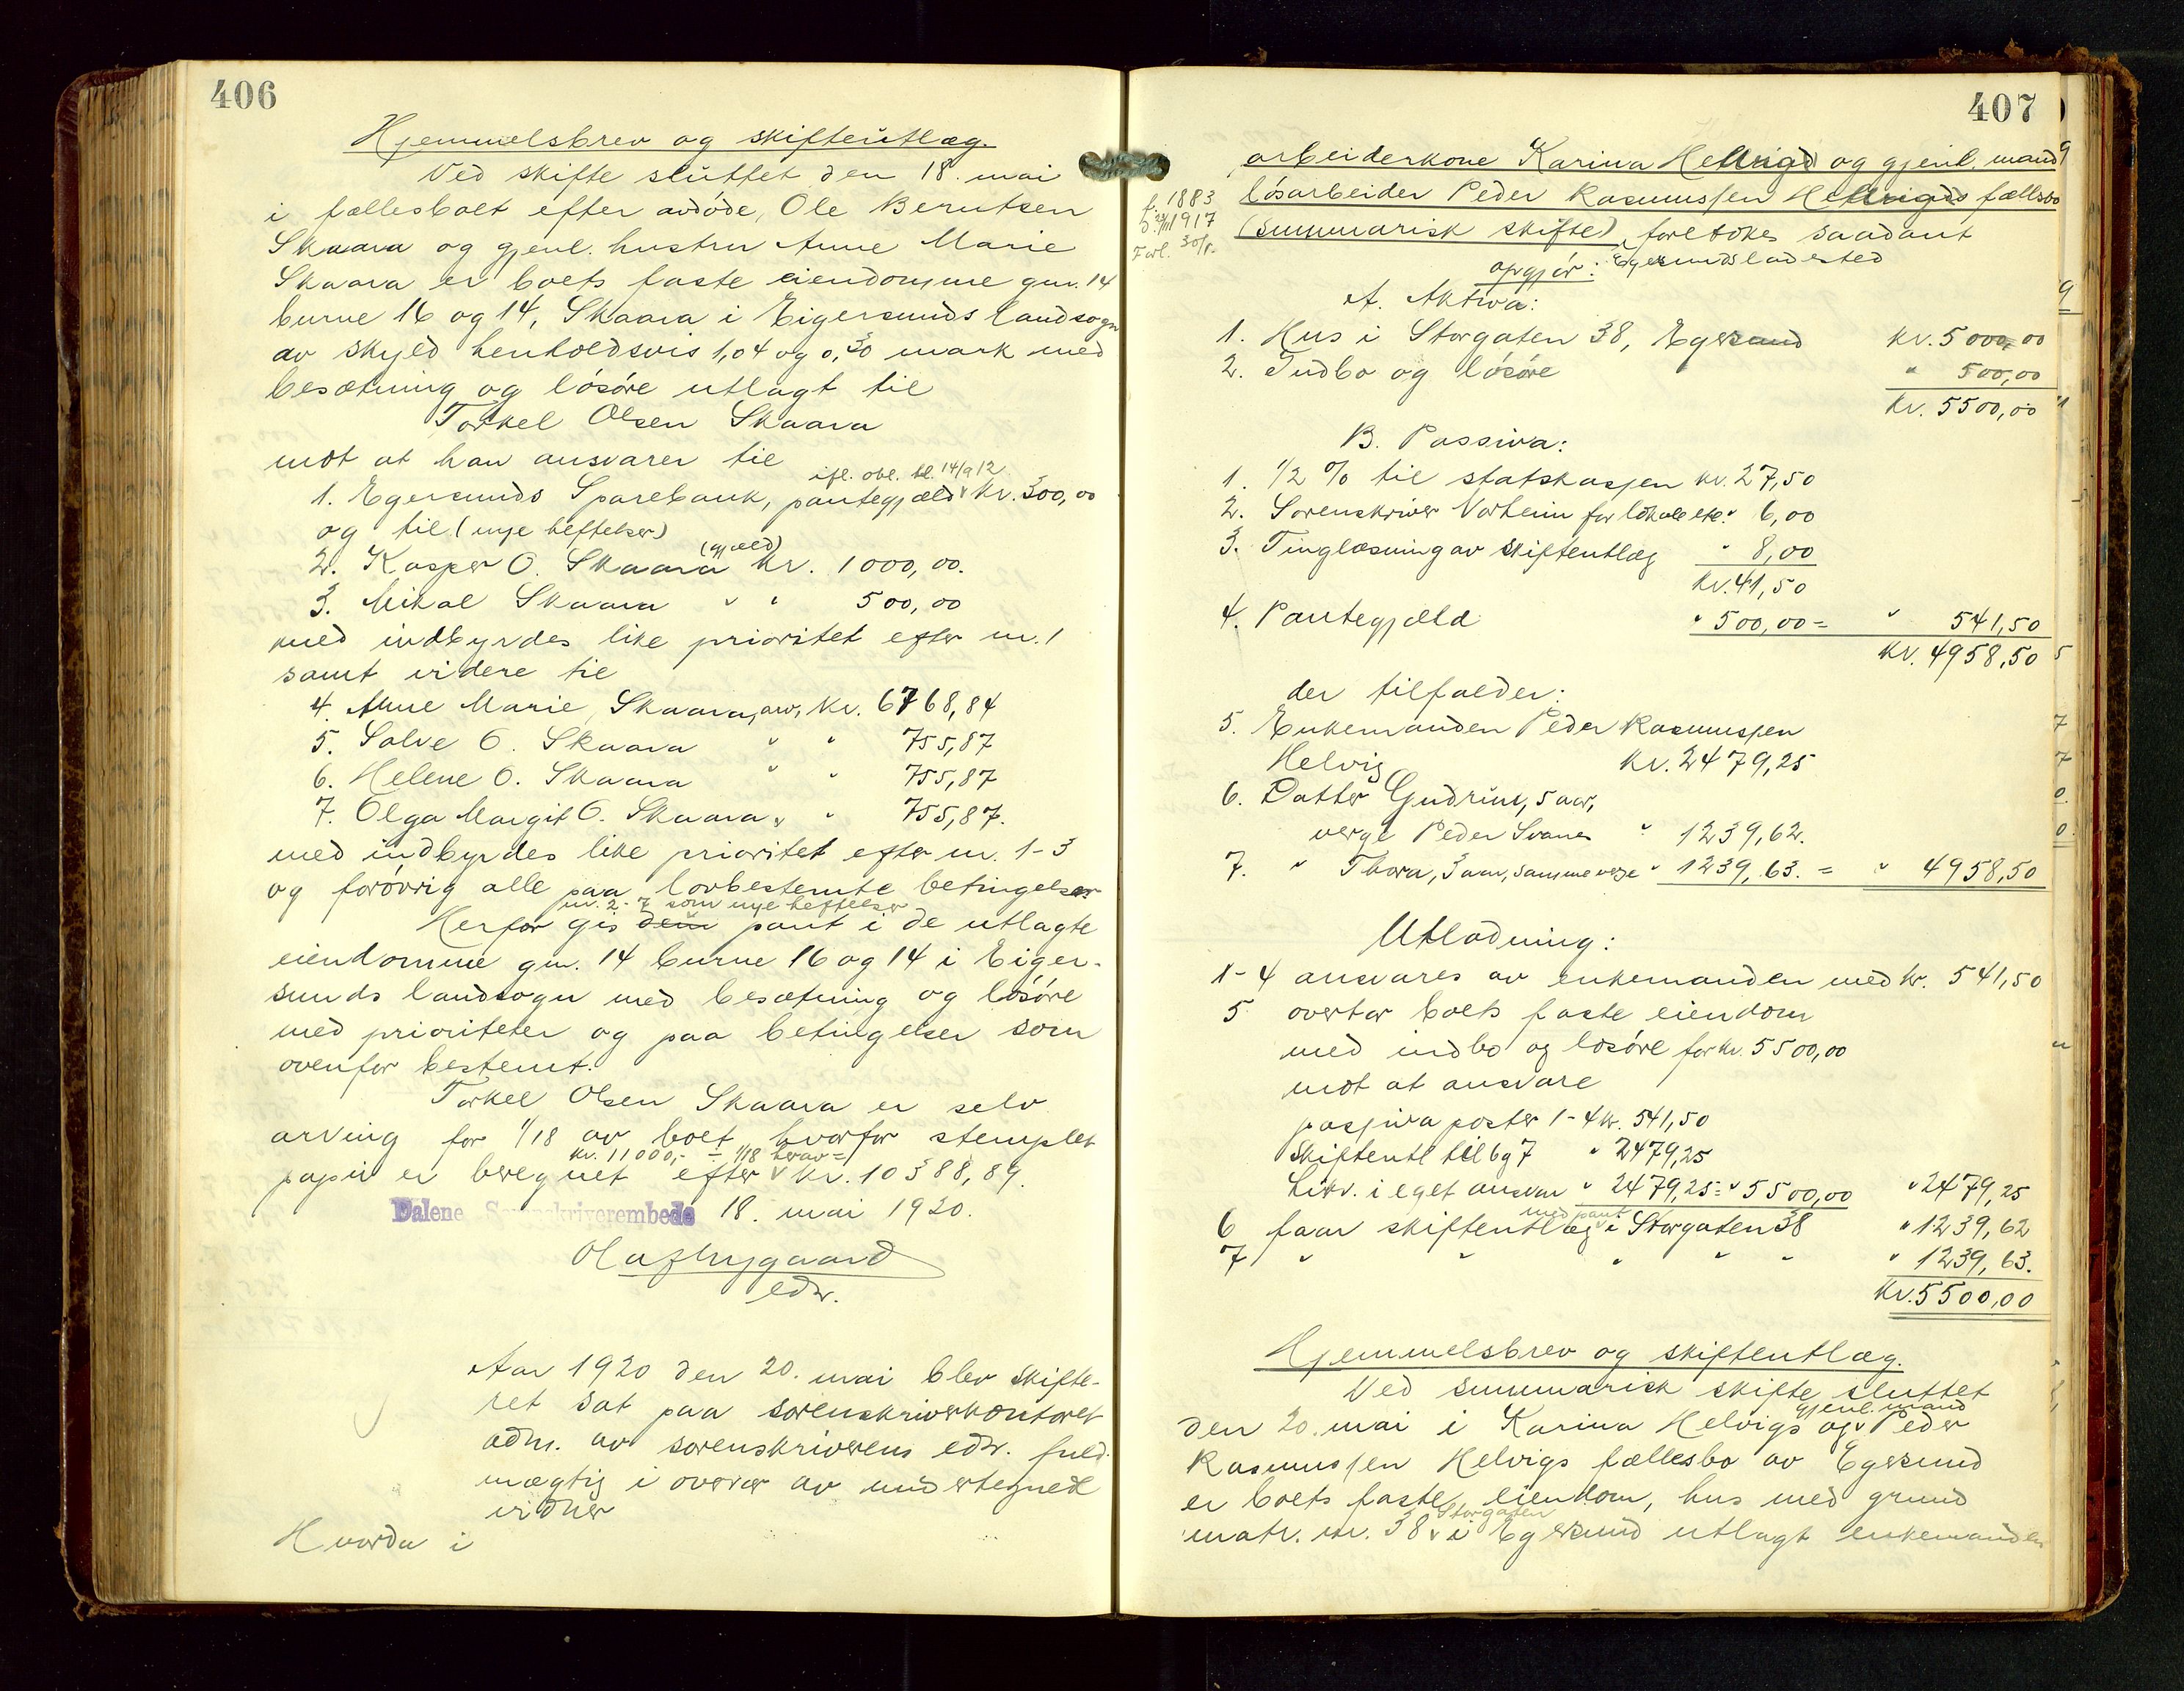 406
Hjemmelsbrev og skifteutlæg.
Ved skifte sluttet den 18. mai
i fællesboet efter avdøde, Ole Berntsen
Skaara og gjenl. hustru Anne Marie
Skaara er boets faste eiendomme gnr. 14
burne 16 og 14, Skaara i Eigersunds landsogn
av skyld henholdsvis 1,04 og 0,30 mark med
besætning og løsøre utlagt til
Torkel Olsen Skaara
mot at han ansvarer til
ifl. obl. tl. 14/9 12
1. Egersunds Sparebank, pantegjæld v kr. 300,00
og til (nye heftelser)
2. Kasper O. Skaara (gjæld) kr. 1000,00.
3. Mikal Skaara " " 500,00
med indbyrdes like prioritet efter nr. 1
samt videre til
4. Anne Marie Skaara, arv, kr. 6768,84
5. Salve O. Skaara " " 755,87
6. Helene O. Skaara " " 755,87
7. Olga Margit O. Skaara " " 755,87.
med indbyrdes like prioritet efter nr. 1-3
og forøvrig alle paa lovbestemte betingelser
nr. 2-7 som nye heftelser
Herfor gis dem pant i de utlagte
eiendomme gnr. 14 burne 16 og 14 i Eiger-
sunds landsogn med besætning og løsøre
med prioriteter og paa betingelser som
ovenfor bestemt.
Torkel Olsen Skaara er selv
arving for 1/18 av boet hvorfor stemplet
kr. 11000,- ÷ 1/18 herav =
papir er beregnet efter v kr. 10388,89.
Dalene Sorenskriverembede 18. mai 1920.
Olaf Nygaard
edv.
Aar 1920 den 20. mai blev skifte-
ret sat paa sorenskriverkontoret
adm. av sorenskriverens edv. fuld-
mægtig i overvær av undertegnede
vidner
Hvorda i
407
arbeiderkone Karina Helvigs og gjenl. mand
f. 1883
løsarbeider Peder Rasmussen Helvigs fællsbo
1917
(summarisk skifte), foretokes saadant
Forl. 30/5.
opgjør: Egersunds ladested
A. Aktiva:
1. Hus i Storgaten 38, Egersund kr. 5000,00
2. Indbo og løsøre " 500,00
kr. 5500,00
B. Passiva:
1. 1/2 % til statskassen kr. 27,50
2. Sorenskriver Norheim for lokale etc. " 6,00
3. Tinglæsning av skifteutlæg " 8,00
kr. 41,50
4. Pantegjæld " 500,00 = " 541,50
kr. 4958,50
der tilfalder:
5. Enkemanden Peder Rasmussen
Helvig kr. 2479,25
6. Datter Gudrun, 5 aar,
verge Peder Svanes " 1239,62.
7. " Thora, 3 aar, samme verge " 1239,63. = " 4958,50
Utlodning:
1-4 ansvares av enkemanden med kr. 541,50
5 overtar boets faste eiendom
med indbo og løsøre for kr. 5500,00
mot at ansvare
passiva poster 1-4 kr. 541,50
Skifteutl til 6 og 7 " 2479,25
Likv. i eget ansvar " 2479,25 = " 5500,00 " 2479,25
med pant
6 faar skifteutlæg v i Storgaten 38 " 1239,62
7 " " " " " " 1239,63.
kr. 5500,00
Hjemmelsbrev og skifteutlæg.
Ved summarisk skifte sluttet
gjenl. mand
den 20. mai i Karina Helvigs og v Peder
Rasmussen Helvigs fællesbo av Egersund
er boets faste eiendom, hus med grund
Storgaten
matr. nr. 38 v i Egersund utlagt enkemanden